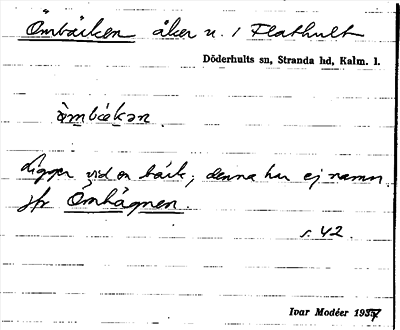 Ömbäcken åker n. 1 Flathult
Döderhults sn, Stranda hd, Kalm. l.
ömbäkən
Ligger vid en bäck; denna har ej namn.
jfr Ömhägnen.
s. 42.
Ivar Modéer 1937